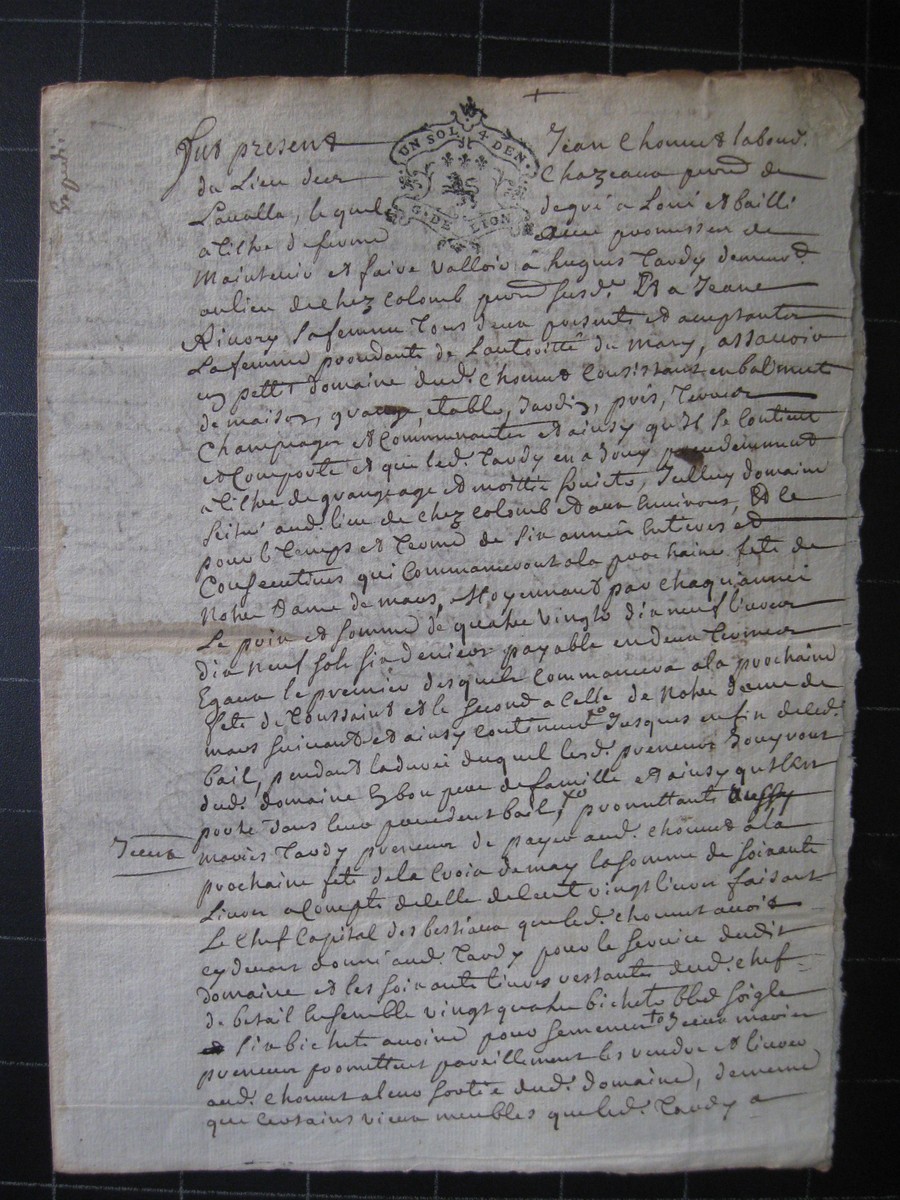 UN SOL 4 DEN
G. DE LION
Fut present Jean Chomat labour.
du Lieu des Chazeaux parr. de
Lavalla, lequel de gré a Loué et bailli
a tiltre de ferme avec promesse de
Maintenir et faire valloir à hugues Tardy demeur.t
au lieu de chez Colomb parr. susd.e Et a Jeane
sa femme Tous deux presents et acceptants
La femme procedante de L'autoritté du Mary, assavoir
un petit domaine dud. Chomat Consistant en batiment
de maison, grange, etable, Jardin, prés, Terres
Champeages et Communautes et ainsy qu'Il se Contient
et Comporte et que led. Tardy en a Jouy precedemment
a tiltre de grangeage et moittié fruicts, Icelluy domaine
scitué aud. lieu de chez Colomb et aux Environs, Et Ce
pour le Temps et Terme de six années Entieres et
Consecutives qui Commanceront a la prochaine fete de
Notre Dame de mars, Moyennant par chaqu'année
Le prix et somme de quatre vingts dix neuf livres
dix neuf sols six deniers payable en deux Termes
Egaux le premier desquels Commancera a la prochaine
fete de Toussaint et le second a Celle de Notre dame de
mars suivant et ainsy Continuer Jusques en fin de ced.
bail, pendant la durée duquel lesd. preneurs Jouyront
dud. domaine En bon pere de famille et ainsy qu'Il est
porté dans leur precedent bail, promettants
Iceux
mariés Tardy preneur de payer aud. Chomat à la
prochaine fete de la Croix de may la somme de soixante
Livres a Compte de Celle de Cent vingt livres faisant
Le Chef Capital des bestiaux que led. Chomat avoit
cy devant donné aud. Tardy pour le service dudit
domaine et les soixante livres restantes dud. chef
de betail Ensemble vingt quatre bichets bled seigle
six bichets avoine pour semences Iceux mariés
preneur promettent pareillement les rendre et livrer
aud. Chomat a leur sortie dud. domaine, de meme
que Certains vieux meubles que led. Tardy a